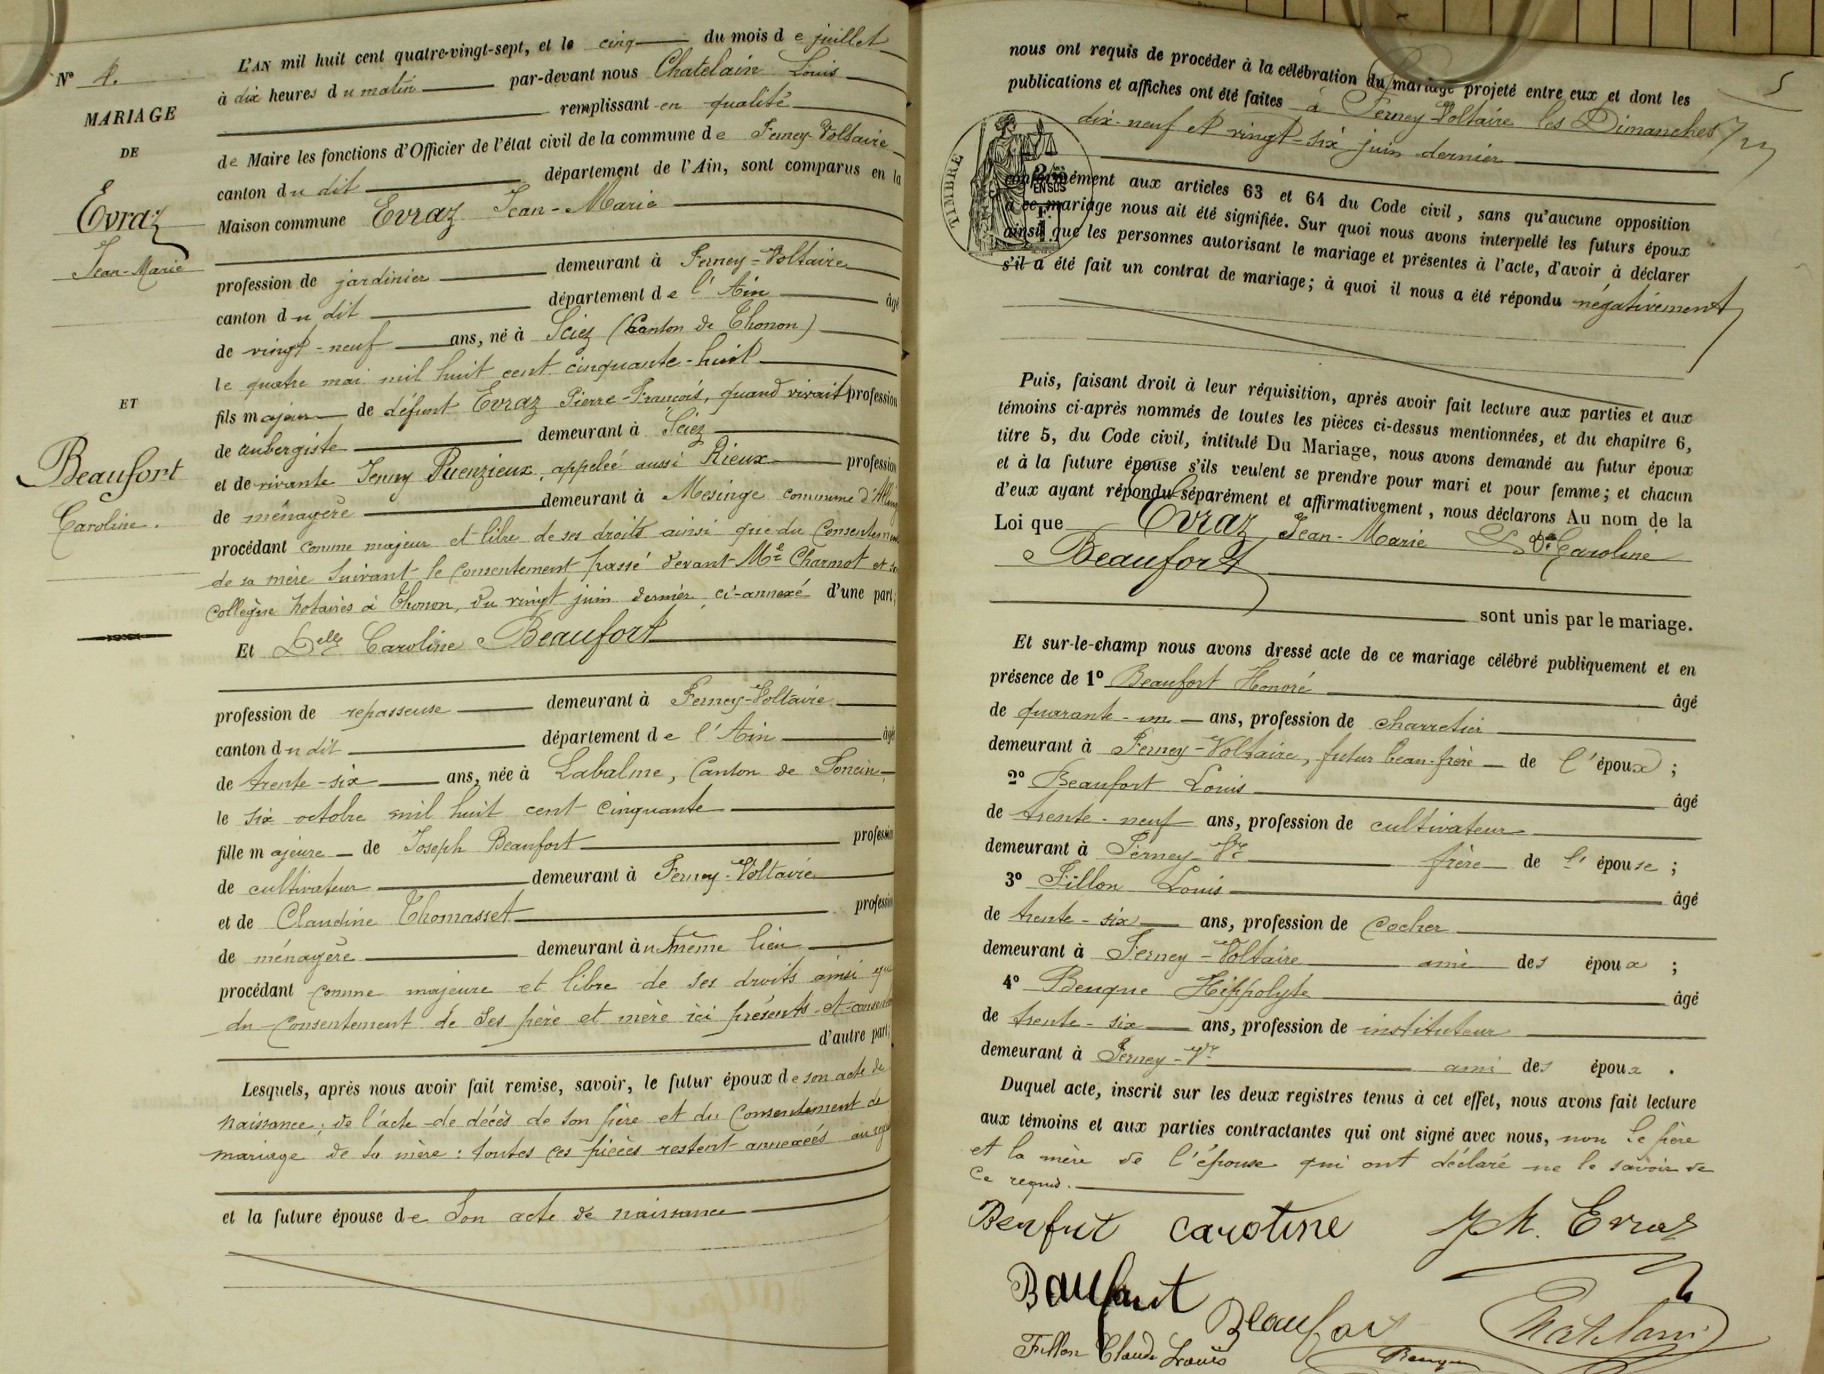 Nº 4.
MARIAGE
DE
Evraz
Jean-Marie
ET
Beaufort
Caroline.
L'AN mil huit cent quatre-vingt-sept, et le cinq du mois de juillet
à dix heures du matin par-devant nous Chatelain Louis
remplissant en qualité
de Maire les fonctions d'Officier de l'état civil de la commune de Ferney-Voltaire
canton du dit département de l'Ain, sont comparus en la
Maison commune Evraz Jean-Marie
profession de jardinier demeurant à Ferney-Voltaire
canton du dit département de l'Ain âgé
de vingt-neuf ans, né à Sciez (Canton de Thonon)
le quatre mai mil huit cent cinquante-huit
fils majeur de défunt Evraz Pierre-François, quand vivait profession
de aubergiste demeurant à Sciez
et de vivante Jenny Ruenzieux, appelée aussi Rieux profession
de ménagère demeurant à Mesinge commune d'Alling
procédant comme majeur et libre de ses droits ainsi que du consentement
de sa mère suivant le consentement passé devant Me Charmot et
collègue notaires à Thonon, du vingt juin dernier, ci-annexé d'une part;
Et Delle Caroline Beaufort
profession de repasseuse demeurant à Ferney-Voltaire
canton du dit département de l'Ain âgé
de trente-six ans, née à Labalme, Canton de Poncin,
le six octobre mil huit cent cinquante
fille majeure de Joseph Beaufort profession
de cultivateur demeurant à Ferney-Voltaire
et de Claudine Thomasset profession
de ménagère demeurant au même lieu
procédant comme majeure et libre de ses droits ainsi que
du consentement de ses père et mère ici présents et consent
d'autre part;
Lesquels, après nous avoir fait remise, savoir, le futur époux de son acte de
naissance; de l'acte de décès de son père et du Consentement de
mariage de sa mère: toutes ces pièces restent annexées au
et la future épouse de son acte de naissance
5
nous ont requis de procéder à la célébration du mariage projeté entre eux et dont les
publications et affiches ont été faites à Ferney Voltaire les Dimanches
dix-neuf et vingt-six juin dernier
TIMBRE
2/10es
EN SUS
F.
1
conformément aux articles 63 et 64 du Code civil, sans qu'aucune opposition
à ce mariage nous ait été signifiée. Sur quoi nous avons interpellé les futurs époux
ainsi que les personnes autorisant le mariage et présentes à l'acte, d'avoir à déclarer
s'il a été fait un contrat de mariage; à quoi il nous a été répondu négativement
Puis, faisant droit à leur réquisition, après avoir fait lecture aux parties et aux
témoins ci-après nommés de toutes les pièces ci-dessus mentionnées, et du chapitre 6,
titre 5, du Code civil, intitulé Du Mariage, nous avons demandé au futur époux
et à la future épouse s'ils veulent se prendre pour mari et pour femme; et chacun
d'eux ayant répondu séparément et affirmativement, nous déclarons Au nom de la
Loi que Evraz Jean-Marie Caroline
Beaufort
sont unis par le mariage.
Et sur-le-champ nous avons dressé acte de ce mariage célébré publiquement et en
présence de 1º Beaufort Honoré âgé
de quarante-un ans, profession de charretier
demeurant à Ferney-Voltaire, futur beau-frère de l'époux;
2º Beaufort Louis âgé
de trente-neuf ans, profession de cultivateur
demeurant à Ferney-Vre frère de l'épouse;
3º Fillon Louis âgé
de trente-six ans, profession de cocher
demeurant à Ferney-Voltaire ami des époux;
4º Beuque Hippolyte âgé
de trente-six ans, profession de instituteur
demeurant à Ferney-Vre ami des époux.
Duquel acte, inscrit sur les deux registres tenus à cet effet, nous avons fait lecture
aux témoins et aux parties contractantes qui ont signé avec nous, non le père
et la mère de l'épouse qui ont déclaré ne le savoir de
ce requis.
Benfut carotine JM. Evraz
Baufaut Beaufort Chatelain
Fillon Claude Louis Beuque